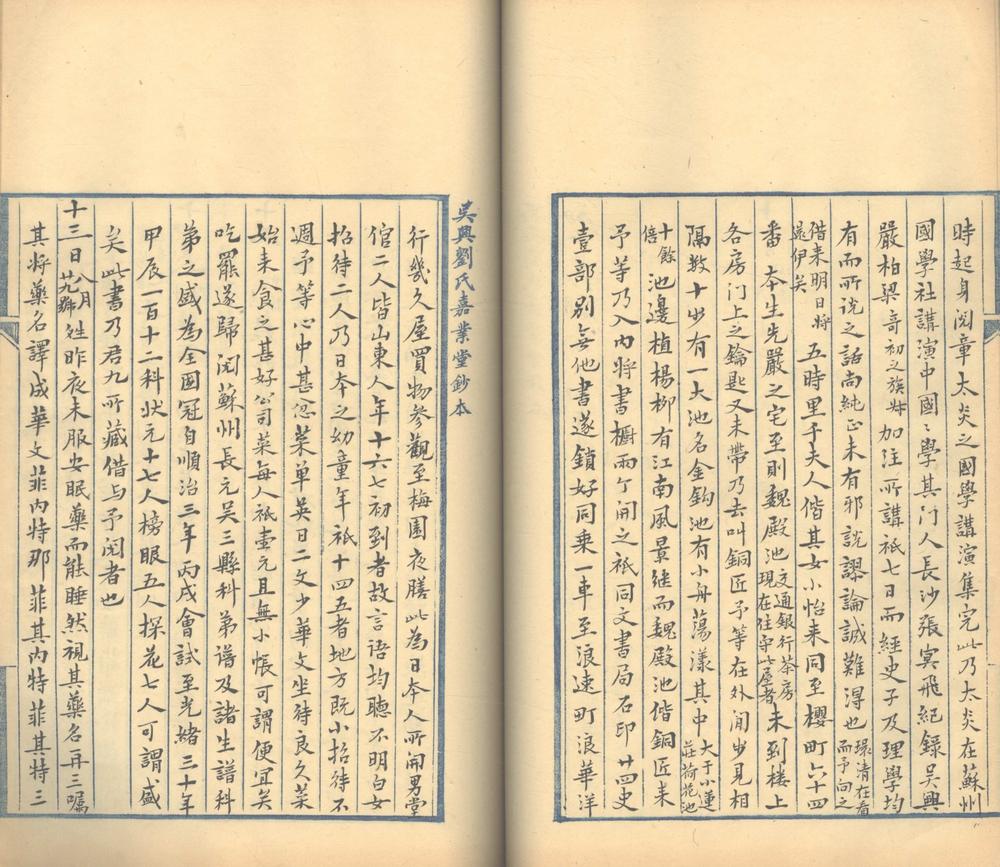 時起身閱章太炎之國學講演集完此乃太炎在蘇州
國學社講演中國〻學其門人長沙張冥飛紀錄吳興
嚴柏梁哥初之族姪加注所講祇七日而經史子及理學均
有而所說之話尚純正未有邪說謬論誠難得也璟清在看而予向之
借來明日將還伊矣五時里千夫人偕其女小怡來同至櫻町六十四
番本生先嚴之宅至則魏殿池交通銀行茶房現在住守此屋者未到樓上
各房门上之鑰匙又未帶乃去叫銅匠予等在外閒步見相
隔數十步有一大池名金鈎池有小舟蕩漾其中大于小蓮莊荷花池
十餘倍池邊植楊柳有江南風景継而魏殿池偕銅匠来
予等乃入內將書櫥兩个開之祇同文書局石印廿四史
壹部別無他書遂鎖好同乗一車至浪速町浪華洋
吳興劉氏嘉業堂鈔本
行幾久屋買物參觀至梅園夜膳此為日本人所開男堂
倌二人皆山東人年十六七初到者故言語均聽不明白女
招待二人乃日本之幼童年祇十四五者地方既小招待不
週予等心中甚忿菜单英日二文少華文坐待良久菜
始来食之甚好公司菜每人祇壹元且無小帳可謂便宜矣
吃罷遂歸閱蘇州長元吳三縣科第譜及諸生譜科
第之盛為全國冠自順治三年丙戌會試至光緒三十年
甲辰一百十二科狀元十七人榜眼五人探花七人可謂盛
矣此書乃君九所藏借与予閱者也
十三日八月廿九號姓昨夜未服安眠藥而能睡然視其藥名再三囑
其將藥名譯成華文菲内特那菲其内特菲其特三